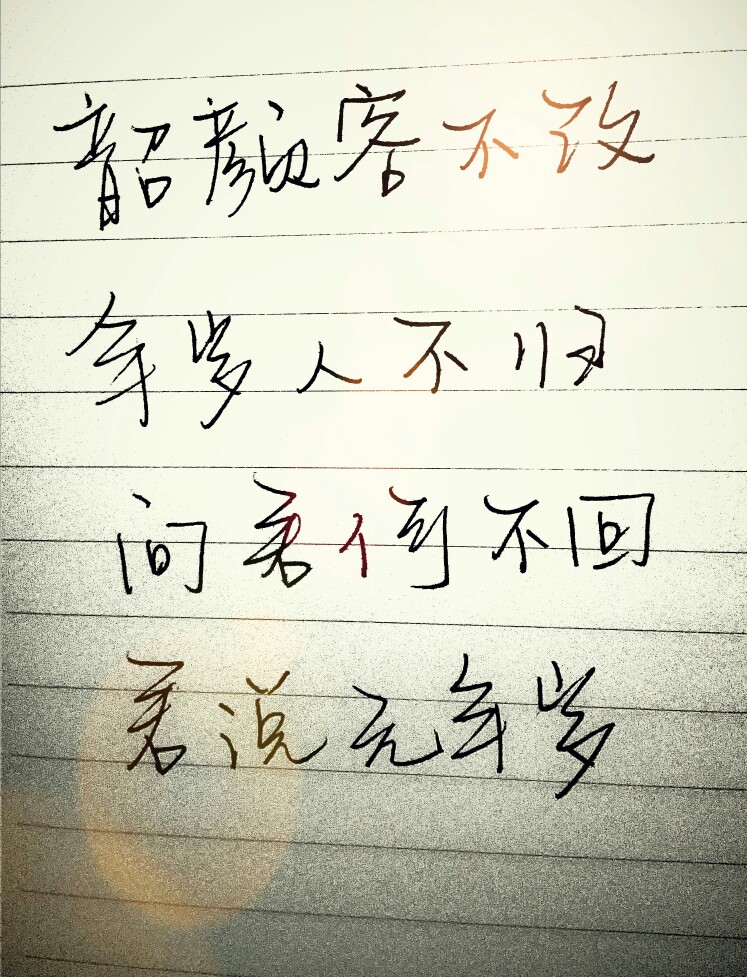 韶颜客不改
年岁人不归
问君何不回
君说无年岁